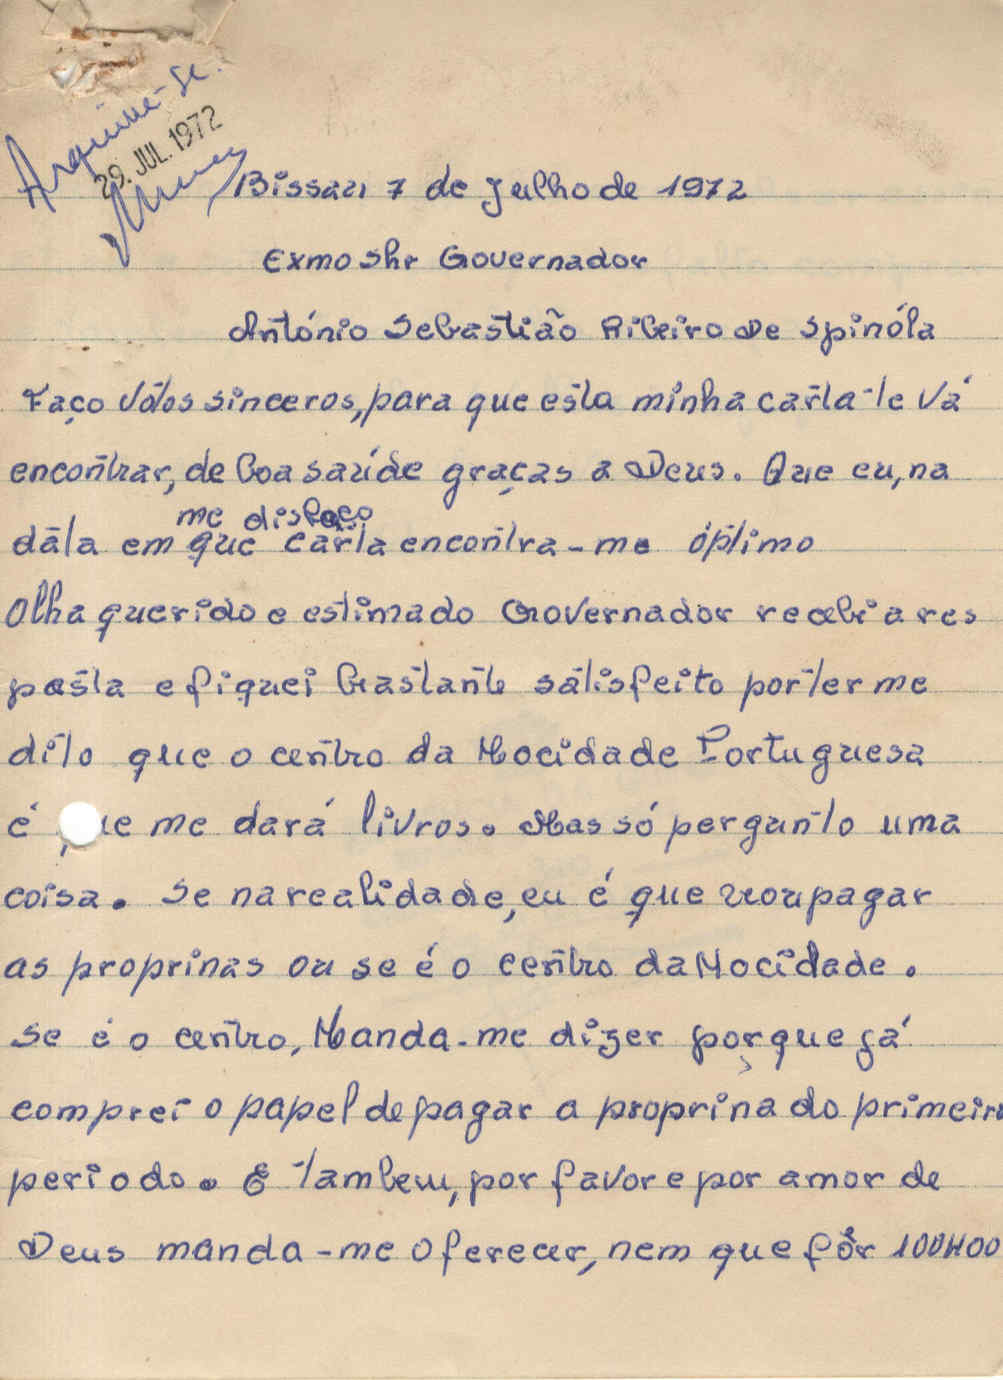 Arquive-se.
29. JUL. 1972
Bissau 7 de Julho de 1972
Exmo Shr Governador
António Sebastião Ribeiro De Spinóla
Faço vótos sinceros, para que esta minha carta-te vá
encontrar, de boa saúde graças a Deus. Que eu, na
me disfaço
dáta em que carta encontra-me óptimo
Olha querido e estimado Governador recebi a res
posta e fiquei bastante sátisfeito por ter me
dito que o centro da Mocidade Portuguesa
é que me dará livros. Mas só pergunto uma
coisa. Se na realidade, eu é que vou pagar
as proprinas ou se é o centro da Mocidade.
Se é o centro, Manda-me dizer porque já
comprei o papel de pagar a proprina do primeiro
periodo. E tambem, por favor e por amor de
Deus manda-me oferecer, nem que fôr 100H00